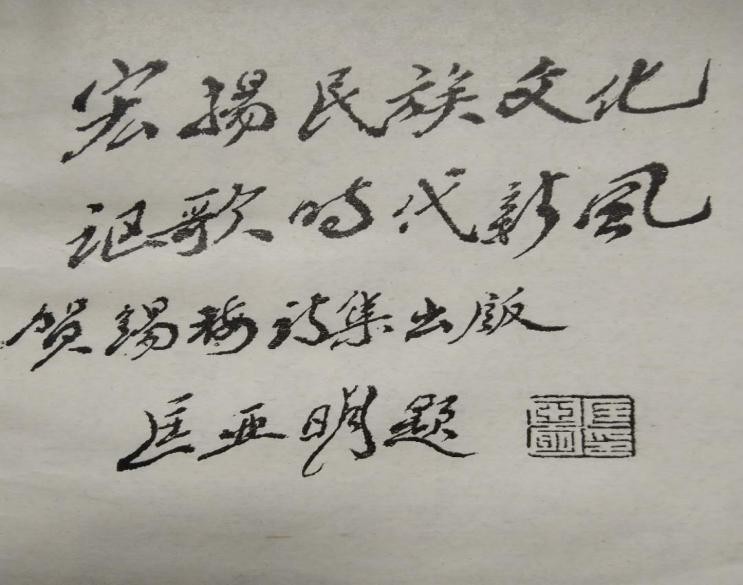 宏揚民族文化
讴歌時代新風
贺錫梅詩集出版
匡亚明題